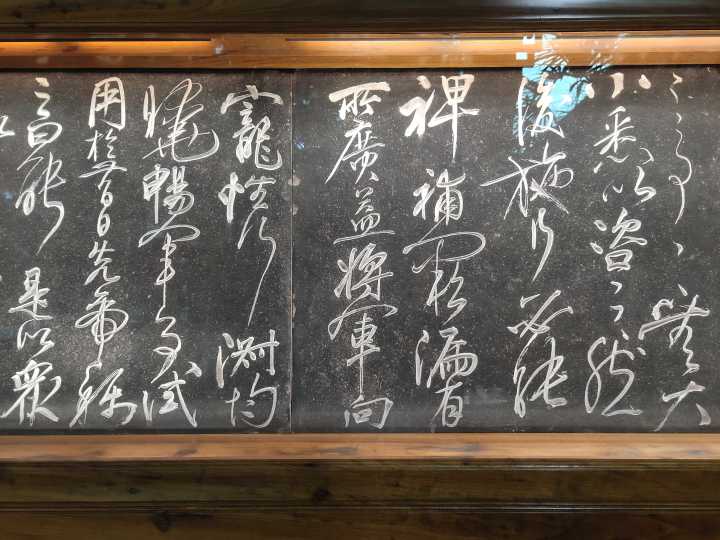 之事〻無大
小悉以咨之然
後施行必能
裨補闕漏有
所廣益將軍向
寵性行淑均
曉暢軍事試
用於昔日先帝稱
之曰能是以衆